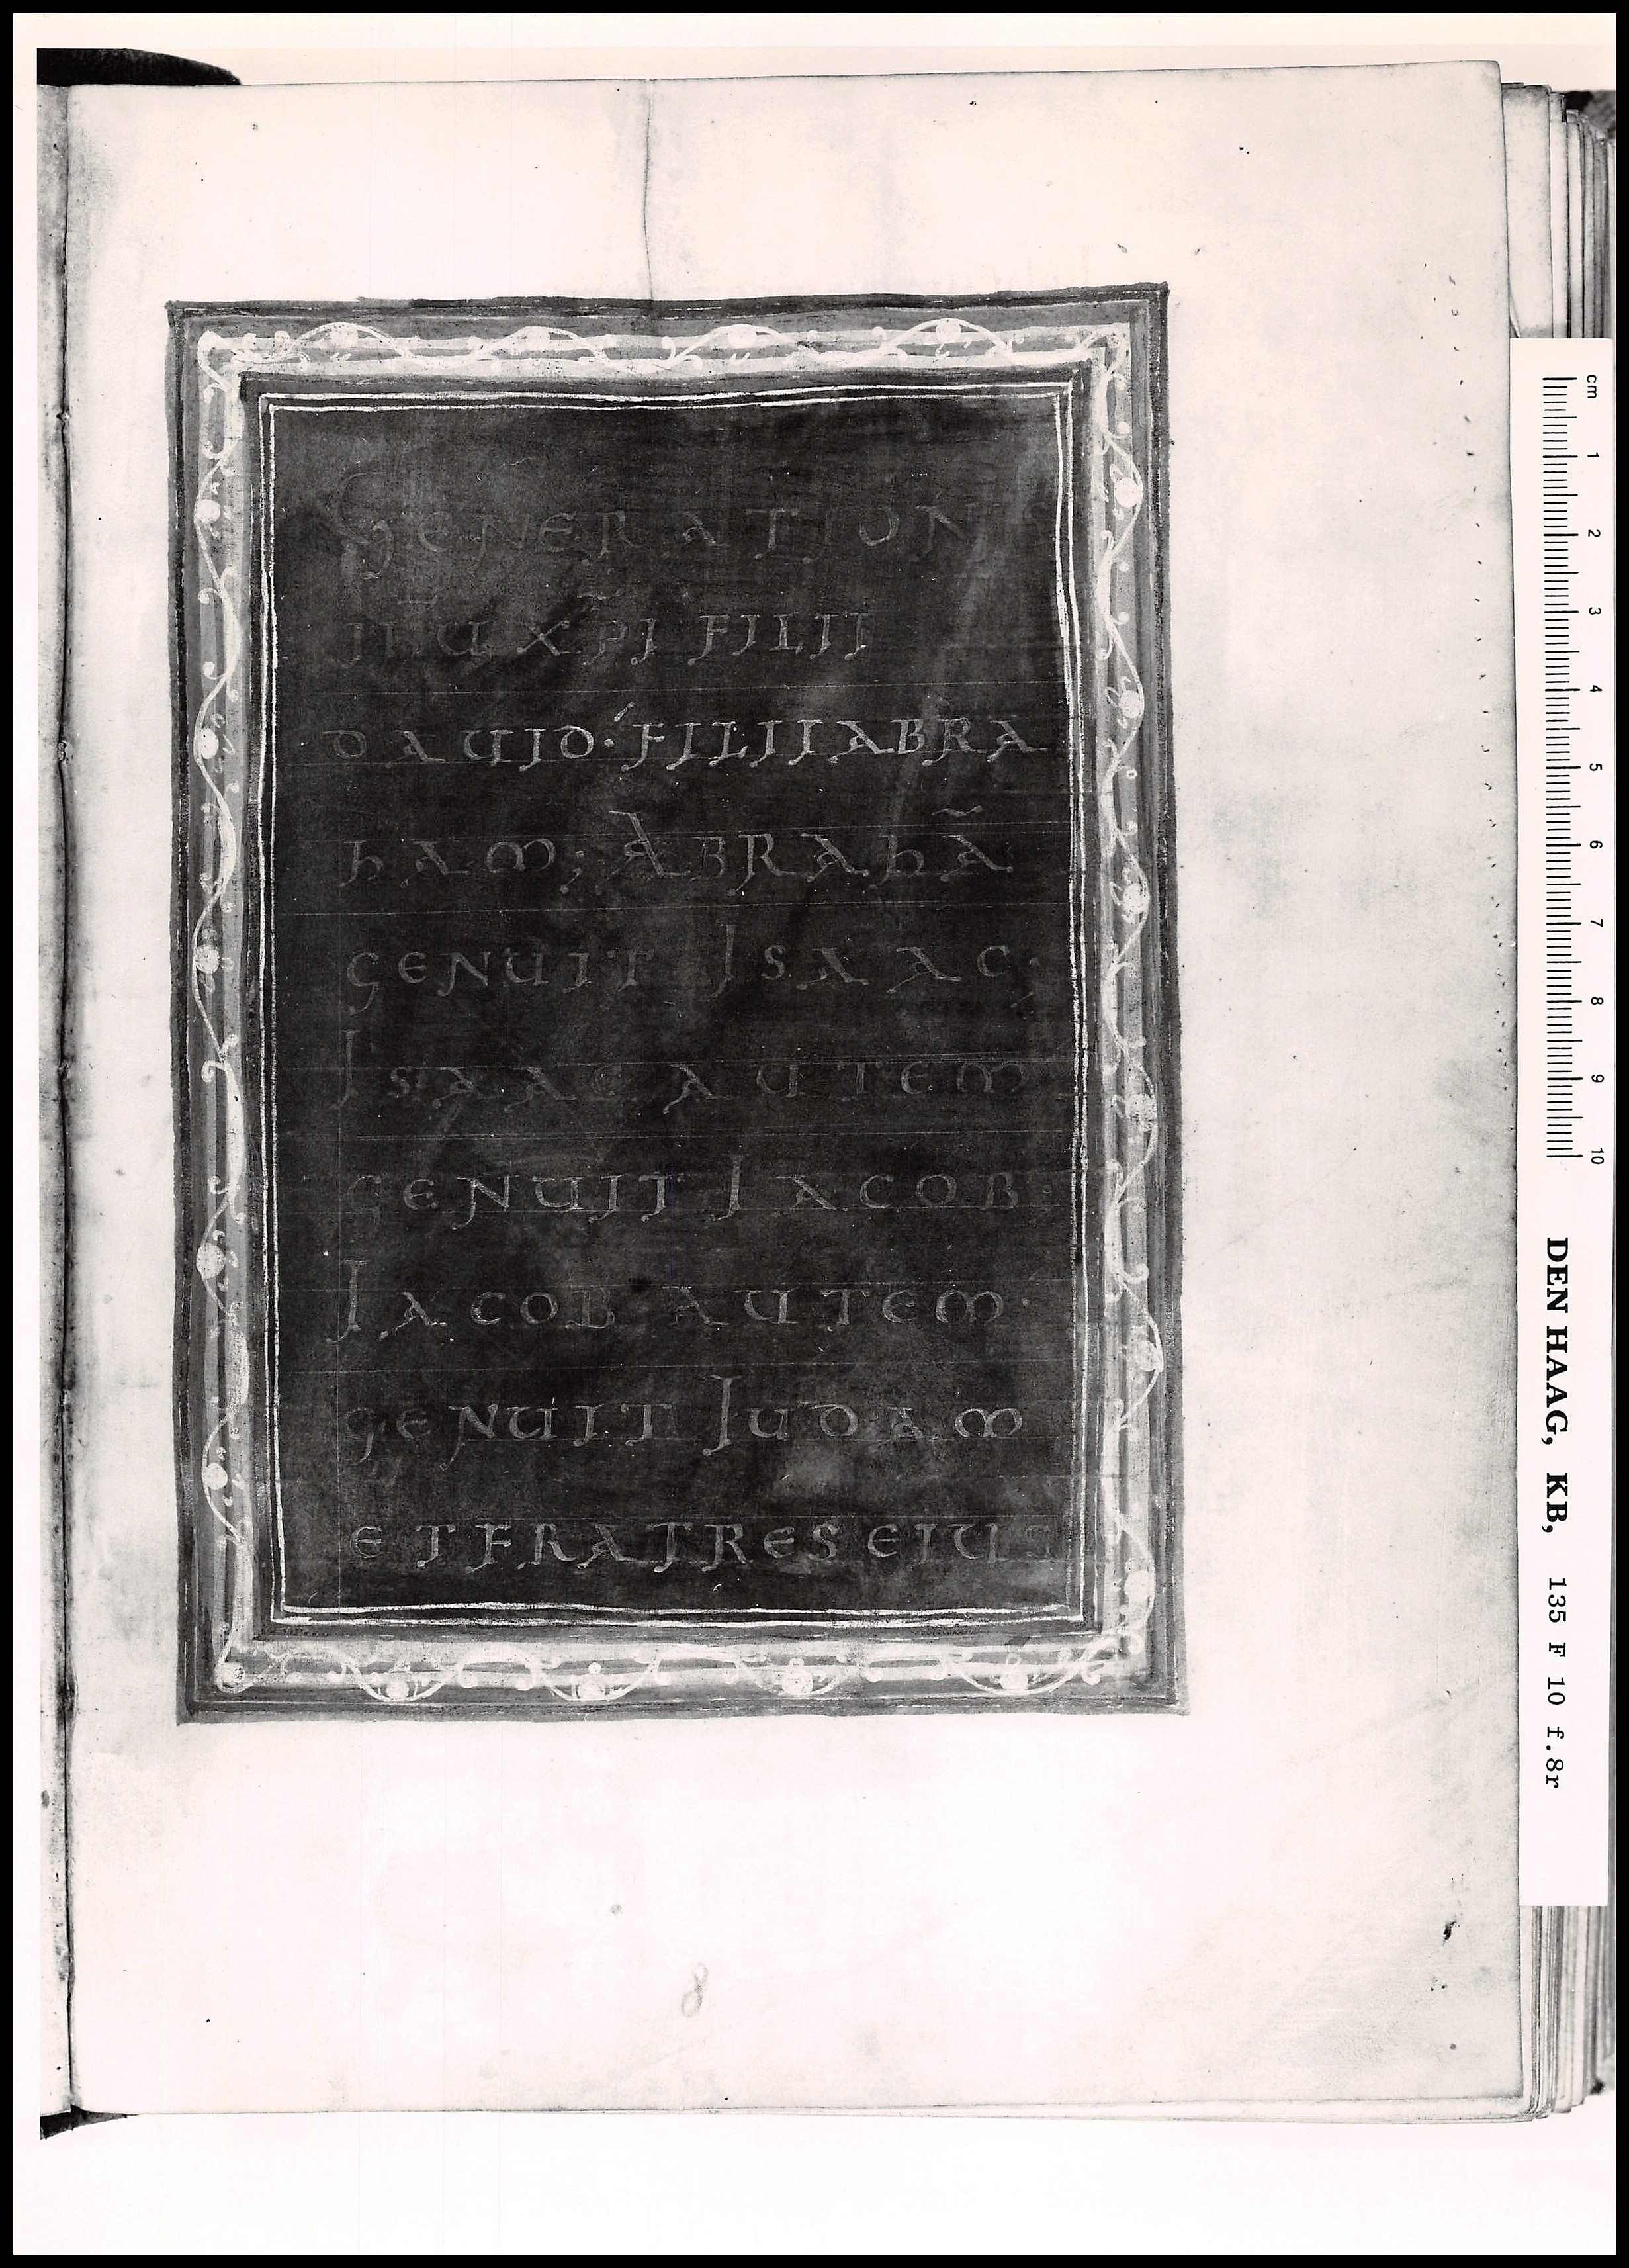 GENERATIONIS
IHU XPI FILII
DAUID· FILII ABRA
hAM; ABRAhÃ
GENUIT ISAAC·
ISAAC AUTEM
GENUIT IACOB·
IACOB AUTEM·
GENUIT IUDAM
ET FRATRES EIUS
8
cm 1 2 3 4 5 6 7 8 9 10
DEN HAAG, KB, 135 F 10 f.8r